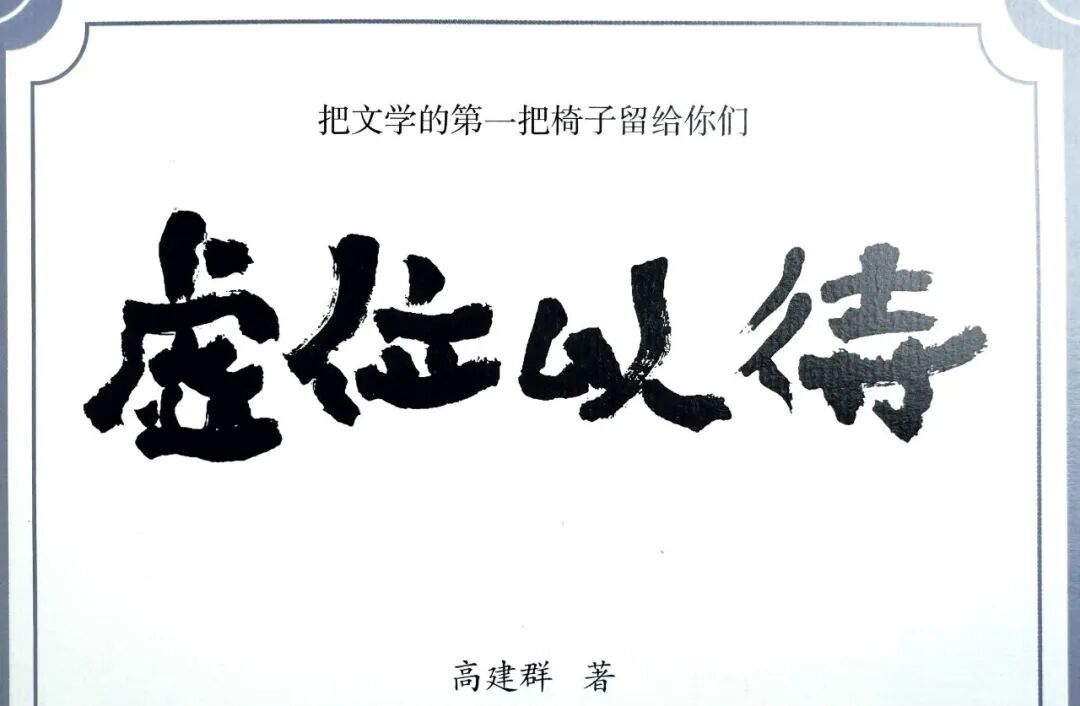 把文学的第一把椅子留给你们
虚位以待
高建群 著